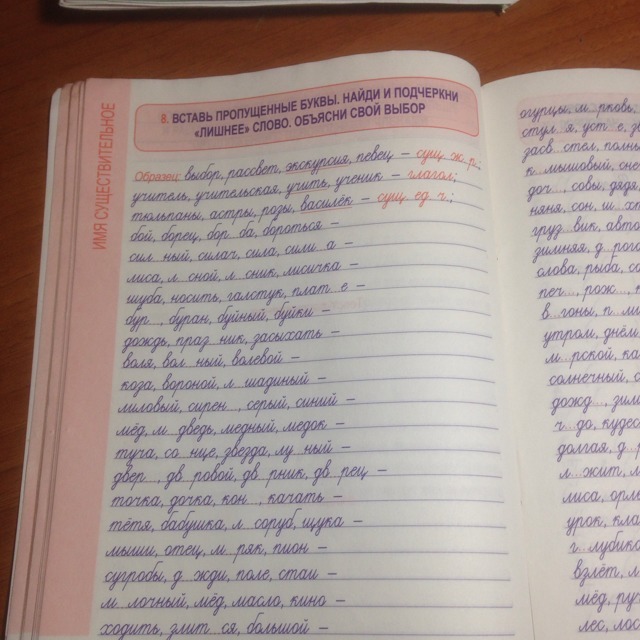 8. ВСТАВЬ ПРОПУЩЕННЫЕ БУКВЫ. НАЙДИ И ПОДЧЕРКНИ
«ЛИШНЕЕ» СЛОВО. ОБЪЯСНИ СВОЙ ВЫБОР
ИМЯ СУЩЕСТВИТЕЛЬНОЕ
Образец: выбор, рассвет, экскурсия, певец – сущ. ж. р.;
учитель, учительская, учить, ученик – глагол;
тюльпаны, астры, розы, василёк – сущ. ед. ч.;
бой, борец, бор ба, бороться –
сил ный, силач, сила, сили а –
лиса, л сной, л сник, лисичка –
шуба, носить, галстук, плат е –
бур , буран, буйный, буйки –
дождь, праз ник, засыхать –
воля, вол ный, волевой –
коза, вороной, л шадиный –
лиловый, сирен , серый, синий –
мёд, м дведь, медный, медок –
туча, со нце, звезда, лу ный –
двер , дв ровой, дв рник, дв рец –
точка, дочка, кон , качать –
тётя, бабушка, л соруб, щука –
мыши, отец, м ряк, пион –
сугробы, д жди, поле, стаи –
м лочный, мёд, масло, кино –
ходить, злит ся, большой –
огурцы, м рковь,
стул я, уст е,
засв стел,
к мышовый,
доч , совы, дядя
няня, сон, ш
груз вик, авто
зимняя, д рог
слова, рыба, со
печ , рож ,
в гоны, п ли
утром, днём,
м рской, ка
солнечный,
дожд , зим
ч до, кудес
долгая, д р
л жит, л
лиса, орл
урок, кла
г лубик
взлёт, л
мёд, руч
лес, лос